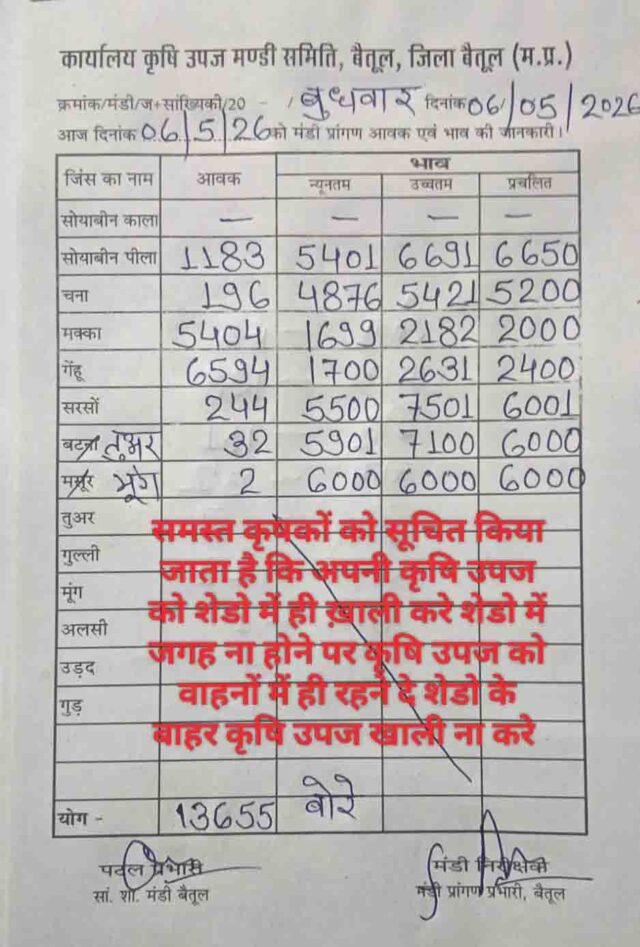 कार्यालय कृषि उपज मण्डी समिति, बैतूल, जिला बैतूल (म.प्र.)
क्रमांक/मंडी/ज+सांख्यिकी/20 - / बुधवार दिनांक 06/05/2026
आज दिनांक 06/5/26 को मंडी प्रांगण आवक एवं भाव की जानकारी।
जिंस का नाम आवक भाव
न्यूनतम उच्चतम प्रचलित
सोयाबीन काला — — — —
सोयाबीन पीला 1183 5401 6691 6650
चना 196 4876 5421 5200
मक्का 5404 1699 2182 2000
गेंहू 6594 1700 2631 2400
सरसों 244 5500 7501 6001
बटरी तुअर 32 5901 7100 6000
मसूर मूंग 2 6000 6000 6000
तुअर
गुल्ली
मूंग
अलसी
उड़द
गुड़
समस्त कृषकों को सूचित किया
जाता है कि अपनी कृषि उपज
को शेडो में ही ख़ाली करे शेडो में
जगह ना होने पर कृषि उपज को
वाहनों में ही रहने दे शेडो के
बाहर कृषि उपज खाली ना करे
योग - 13655 बोरे
प्रभारी मंडी निरीक्षक
सां. शा. मंडी बैतूल मंडी प्रांगण प्रभारी, बैतूल